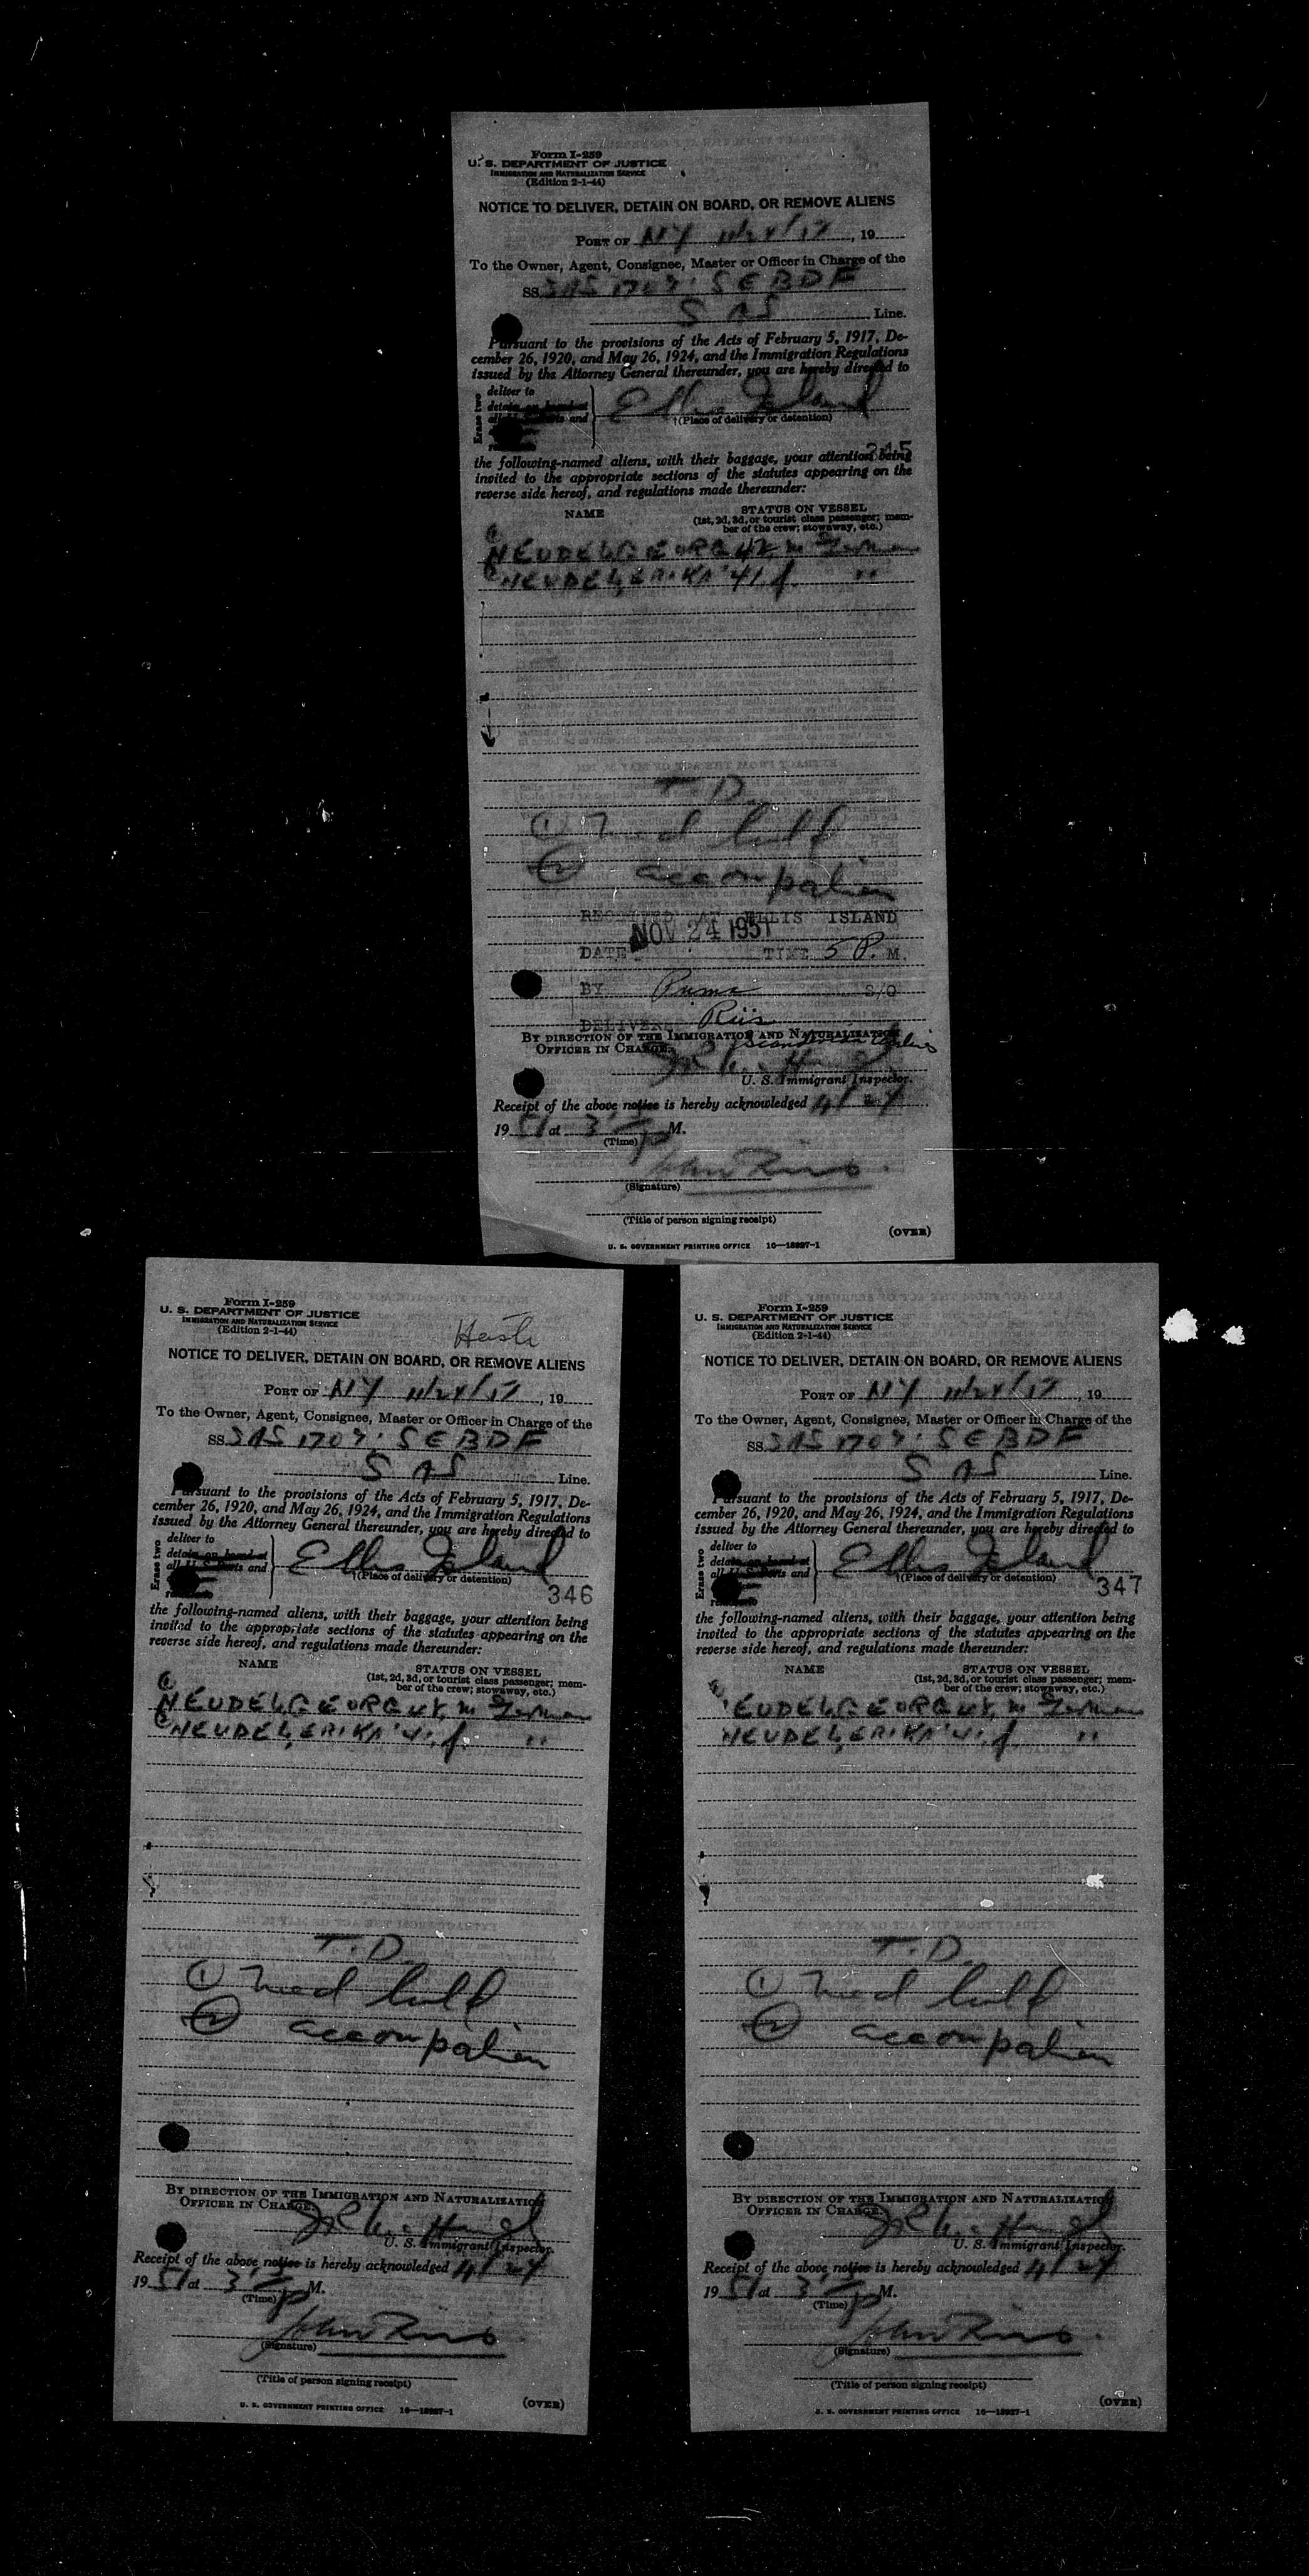 Form I-259
U. S. DEPARTMENT OF JUSTICE
IMMIGRATION AND NATURALIZATION SERVICE
(Edition 2-1-44)
NOTICE TO DELIVER, DETAIN ON BOARD, OR REMOVE ALIENS
PORT OF NY 11/24/, 19
To the Owner, Agent, Consignee, Master or Officer in Charge of the
SS SAS 1707: SEBDF
SAS Line.
Pursuant to the provisions of the Acts of February 5, 1917, De-
cember 26, 1920, and May 26, 1924, and the Immigration Regulations
issued by the Attorney General thereunder, you are hereby directed to
Erase two
deliver to
detain on board at
and
Ellis Island
†(Place of delivery or detention)
345
the following-named aliens, with their baggage, your attention being
invited to the appropriate sections of the statutes appearing on the
reverse side hereof, and regulations made thereunder:
NAME STATUS ON VESSEL
(1st, 2d, 3d, or tourist class passenger; mem-
ber of the crew; stowaway, etc.)
NEUDEL, GEORG 42 m German
NEUDEL, ERIKA 41 f. "
T. D.
①
② accompalien
RECEIVED AT ELLIS ISLAND
DATE NOV 24 1951 TIME 5 P. M.
BY S/O
DELIVER Riis
BY DIRECTION OF THE IMMIGRATION AND NATURALIZATION
OFFICER IN CHARGE.
U. S. Immigrant Inspector.
Receipt of the above notice is hereby acknowledged 11/24
19 51 at 3 P M.
(Time)
John Riis
(Signature)
(Title of person signing receipt)
(OVER)
U. S. GOVERNMENT PRINTING OFFICE 16—18927-1
Form I-259
U. S. DEPARTMENT OF JUSTICE
IMMIGRATION AND NATURALIZATION SERVICE
(Edition 2-1-44)
NOTICE TO DELIVER, DETAIN ON BOARD, OR REMOVE ALIENS
PORT OF NY 11/24/, 19
To the Owner, Agent, Consignee, Master or Officer in Charge of the
SS SAS 1707: SEBDF
SAS Line.
Pursuant to the provisions of the Acts of February 5, 1917, De-
cember 26, 1920, and May 26, 1924, and the Immigration Regulations
issued by the Attorney General thereunder, you are hereby directed to
Erase two
deliver to
detain on board at
and
Ellis Island
†(Place of delivery or detention)
346
the following-named aliens, with their baggage, your attention being
invited to the appropriate sections of the statutes appearing on the
reverse side hereof, and regulations made thereunder:
NAME STATUS ON VESSEL
(1st, 2d, 3d, or tourist class passenger; mem-
ber of the crew; stowaway, etc.)
NEUDEL, GEORG 42 m German
NEUDEL, ERIKA 41 f. "
T. D.
① med
② accompalien
BY DIRECTION OF THE IMMIGRATION AND NATURALIZATION
OFFICER IN CHARGE.
U. S. Immigrant Inspector.
Receipt of the above notice is hereby acknowledged 11/24
19 51 at 3 P M.
(Time)
John Riis
(Signature)
(Title of person signing receipt)
(OVER)
U. S. GOVERNMENT PRINTING OFFICE 16—18927-1
Form I-259
U. S. DEPARTMENT OF JUSTICE
IMMIGRATION AND NATURALIZATION SERVICE
(Edition 2-1-44)
NOTICE TO DELIVER, DETAIN ON BOARD, OR REMOVE ALIENS
PORT OF NY 11/24/, 19
To the Owner, Agent, Consignee, Master or Officer in Charge of the
SS SAS 1707: SEBDF
SAS Line.
Pursuant to the provisions of the Acts of February 5, 1917, De-
cember 26, 1920, and May 26, 1924, and the Immigration Regulations
issued by the Attorney General thereunder, you are hereby directed to
Erase two
deliver to
detain on board at
and
Ellis Island
†(Place of delivery or detention)
347
the following-named aliens, with their baggage, your attention being
invited to the appropriate sections of the statutes appearing on the
reverse side hereof, and regulations made thereunder:
NAME STATUS ON VESSEL
(1st, 2d, 3d, or tourist class passenger; mem-
ber of the crew; stowaway, etc.)
EUDEL, GEORG 42 m German
NEUDEL, ERIKA 41 f "
T. D.
① med
② accompalien
BY DIRECTION OF THE IMMIGRATION AND NATURALIZATION
OFFICER IN CHARGE.
U. S. Immigrant Inspector.
Receipt of the above notice is hereby acknowledged 11/24
19 51 at 3 P M.
(Time)
John Riis
(Signature)
(Title of person signing receipt)
(OVER)
U. S. GOVERNMENT PRINTING OFFICE 16—18927-1